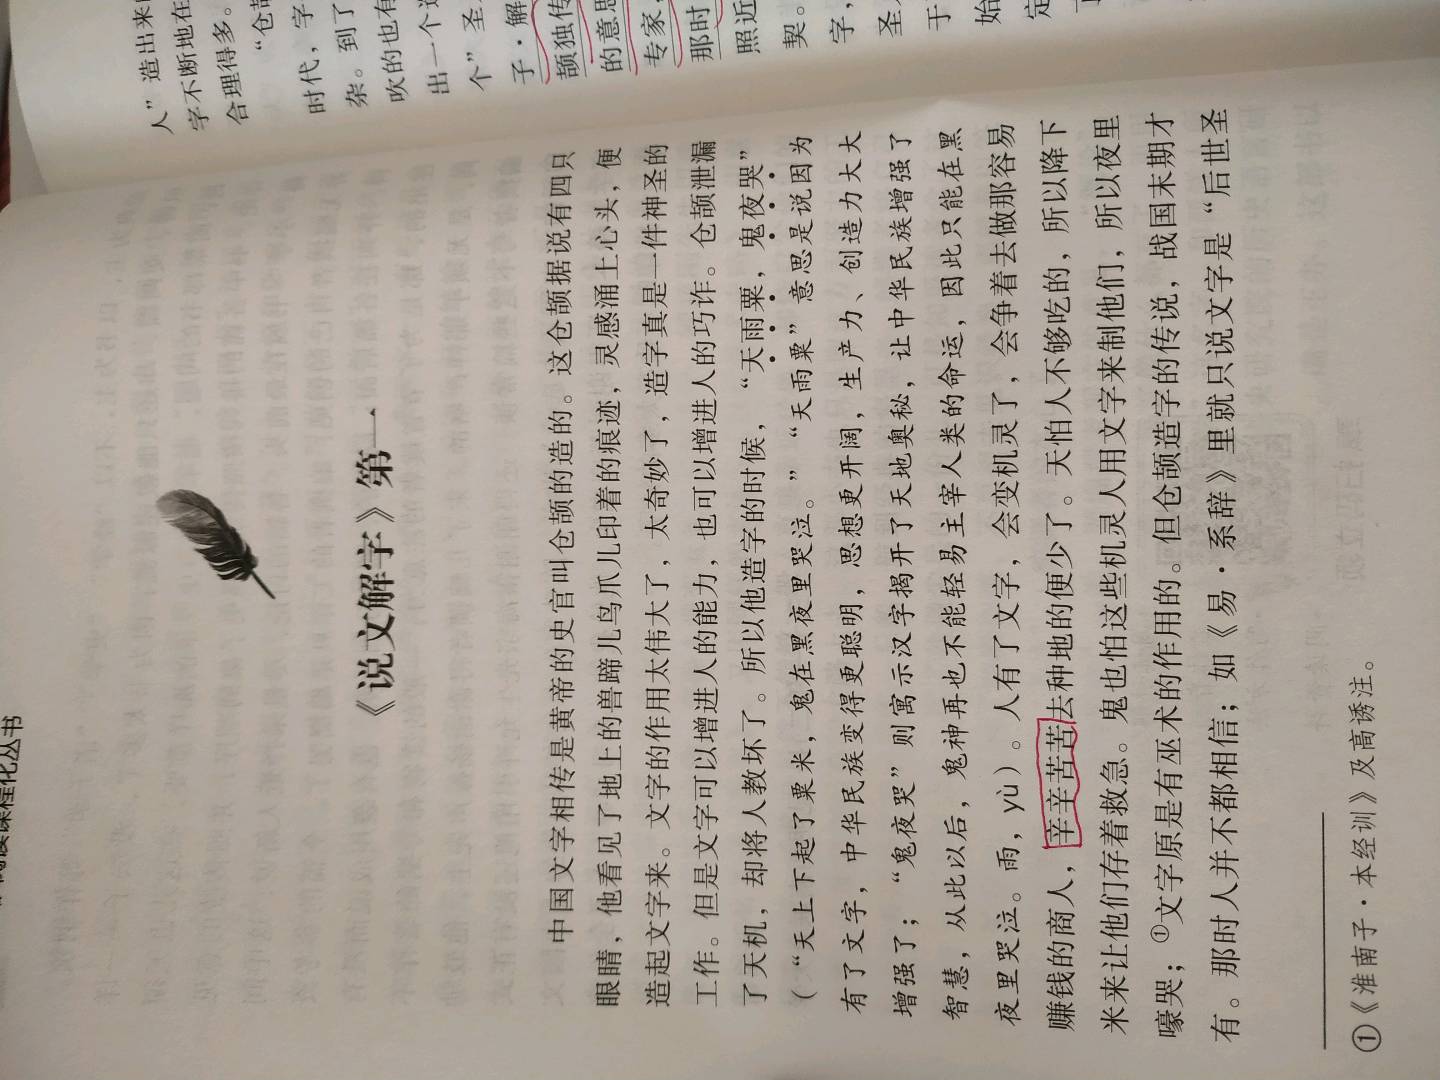 阅读课程化丛书
《说文解字》第一
中国文字相传是黄帝的史官叫仓颉的造的。这仓颉据说有四只
眼睛，他看见了地上的兽蹄儿鸟爪儿印着的痕迹，灵感涌上心头，便
造起文字来。文字的作用太伟大了，太奇妙了，造字真是一件神圣的
工作。但是文字可以增进人的能力，也可以增进人的巧诈。仓颉泄漏
了天机，却将人教坏了。所以他造字的时候，“天雨粟，鬼夜哭”
（“天上下起了粟米，鬼在黑夜里哭泣。”“天雨粟”意思是说因为
有了文字，中华民族变得更聪明，思想更开阔，生产力、创造力大大
增强了；“鬼夜哭”则寓示汉字揭开了天地奥秘，让中华民族增强了
智慧，从此以后，鬼神再也不能轻易主宰人类的命运，因此只能在黑
夜里哭泣。雨，yù）。人有了文字，会变机灵了，会争着去做那容易
赚钱的商人，辛辛苦苦去种地的便少了。天怕人不够吃的，所以降下
米来让他们存着救急。鬼也怕这些机灵人用文字来制他们，所以夜里
嚎哭；①文字原是有巫术的作用的。但仓颉造字的传说，战国末期才
有。那时人并不都相信；如《易·系辞》里就只说文字是“后世圣
①《淮南子·本经训》及高诱注。
人”造出来
字不断地在
合理得多。
“仓颉
时代，字
杂。到了
吹的也有
出一个
个”圣
子·解
颉独传
的意思
专家，
那时
照近
契。
字，
圣
于
始
定